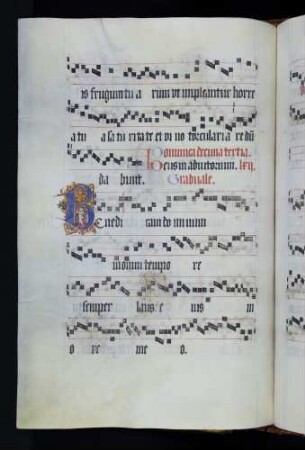 is frugum tu a rum ut impleantur horre
a tu a satu rita te et vi no torcularia redū
Dominica decima tertia.
Deus in adiutorium. lxij.
da bunt. Graduale.
Benedi cam do minum
in omni tempo re
semper laus e ius in
o re me o.